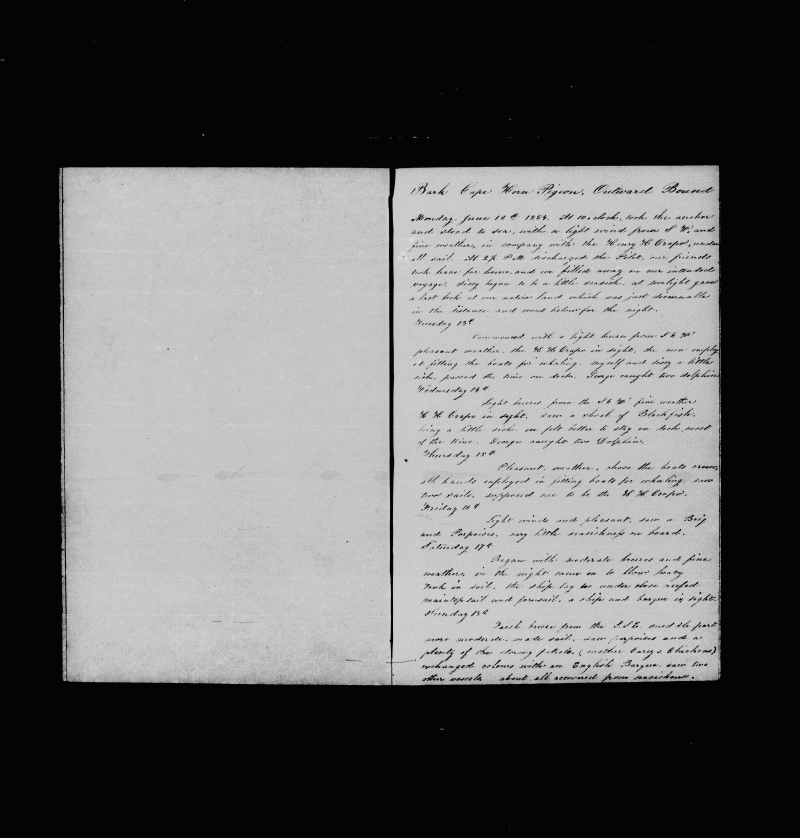 Bark Cape Horn Pigeon. Outward Bound
Monday June 12th 1854. At 10 oclock, took the anchor
and stood to sea, with a light wind from S W, and
fine weather, in company with the Henry H Crapo, under
all sail. At 2½ P.M. discharged the Pilot, our friends
took leave for home, and we filled away on our intended
voyage, Sissy began to be a little seasick. at sunlight gave
a last look at our native land which was just discernable
in the distance and went below for the night.
Tuesday 13th
Commenced with a light breeze from S & W
pleasant weather, the H H Crapo in sight, the men employ
at fitting the boats for whaling. myself and Sissy a little
sick, passed the time on deck. George caught two dolphins
Wednesday 14th
Light breezes from the S & W fine weather
H H Crapo in sight. saw a shoal of Blackfish.
being a little sick. we felt better to stay on deck, most
of the time. George caught two Dolphin.
Thursday 15th
Pleasant weather, chose the boats crews,
all hands employed in fitting boats for whaling. saw
two sails, supposed one to be the H H Crapo.
Friday 16th
Light winds and pleasant, saw a Brig
and Porpoises, very little seasickness on board.
Saturday 17th
Began with moderate breezes and fine
weather, in the night came on to blow heavy
took in sail, the ship lay to under close reefed
maintopsail and foresail, a ship and barque in sight.
Sunday 18th
Fresh breeze from the S.S.E. middle part
more moderate, made sail. saw porpoises and a
plenty of the stormy petrels (mother Carys Chickens)
exchanged colours with an English Barque, saw two
other vessels. about all recovered from seasickness.